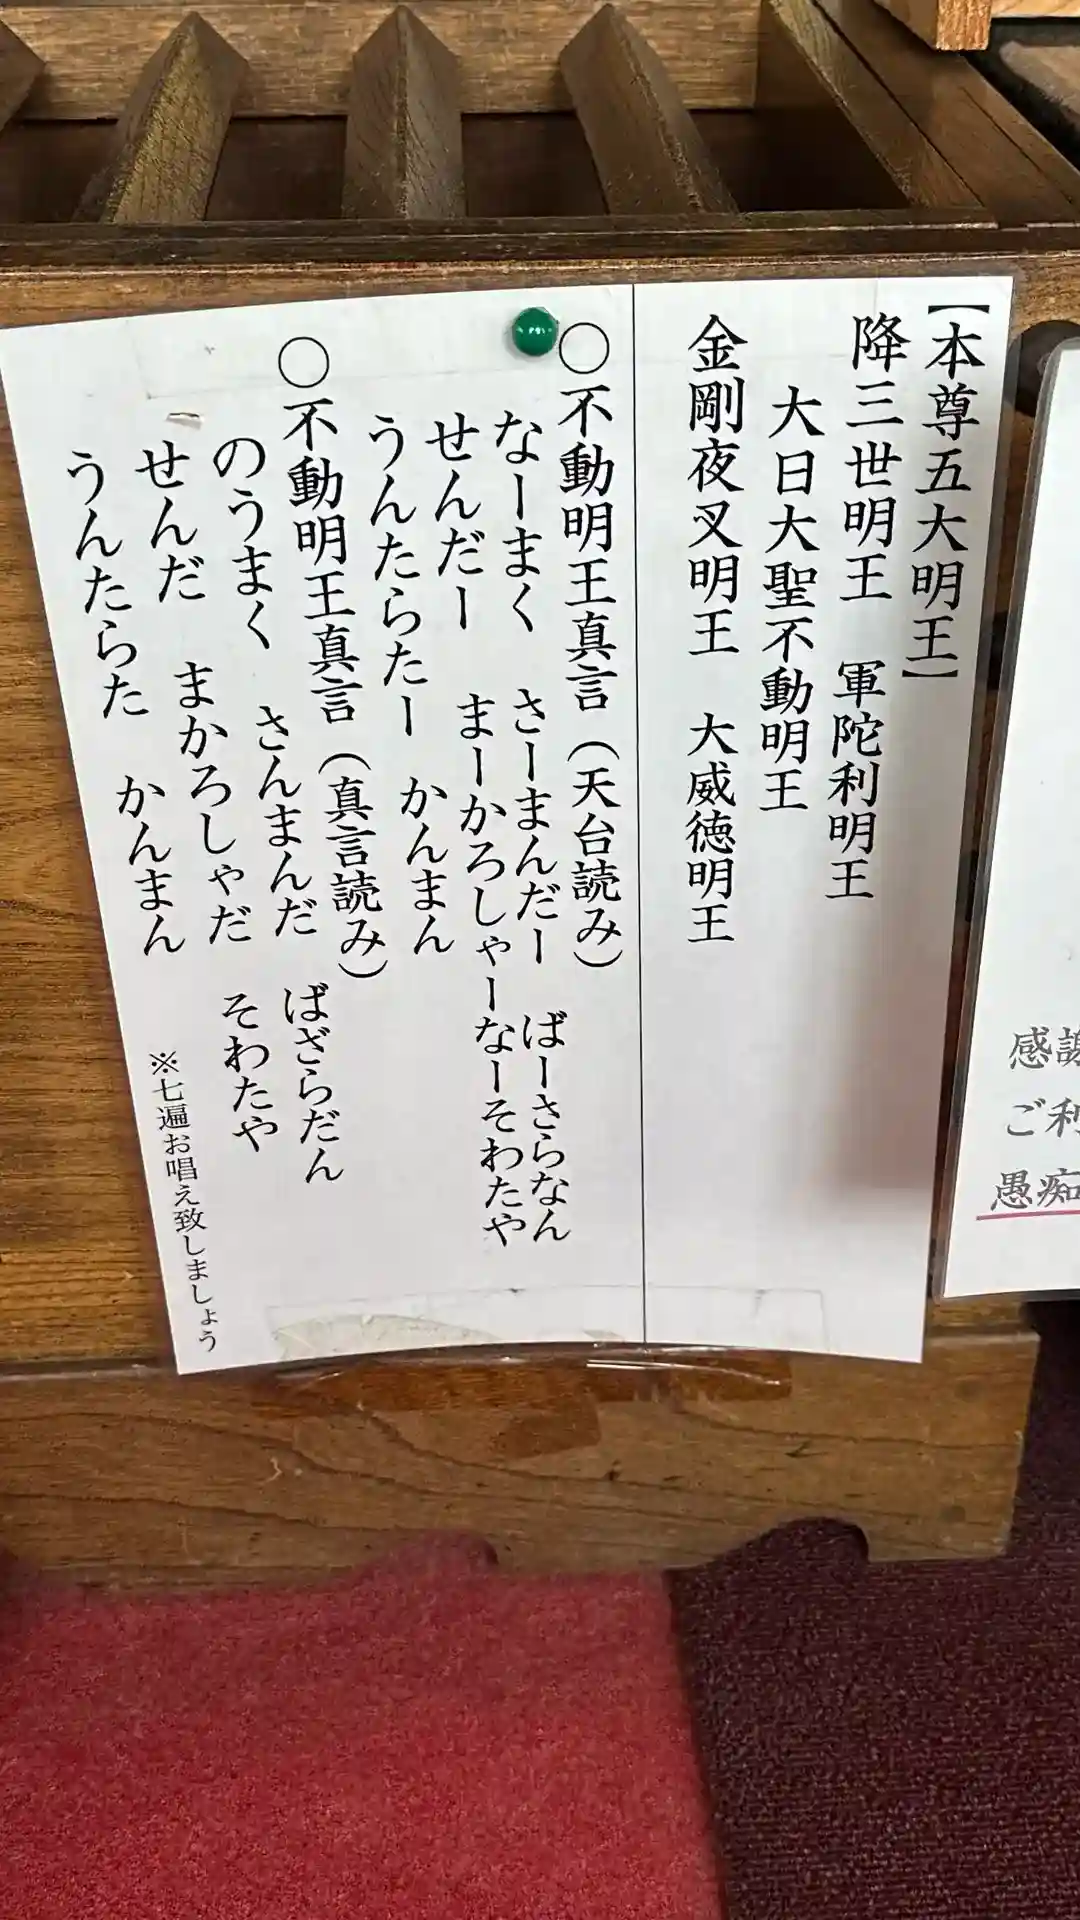 感謝
ご利
愚痴
【本尊五大明王】
降三世明王　軍陀利明王
大日大聖不動明王
金剛夜叉明王　大威徳明王
○不動明王真言（天台読み）
なーまく　さーまんだー　ばーさらなん
せんだー　まーかろしゃーなーそわたや
うんたらたー　かんまん
○不動明王真言（真言読み）
のうまく　さんまんだ　ばざらだん
せんだ　まかろしゃだ　そわたや
うんたらた　かんまん
※七遍お唱え致しましょう